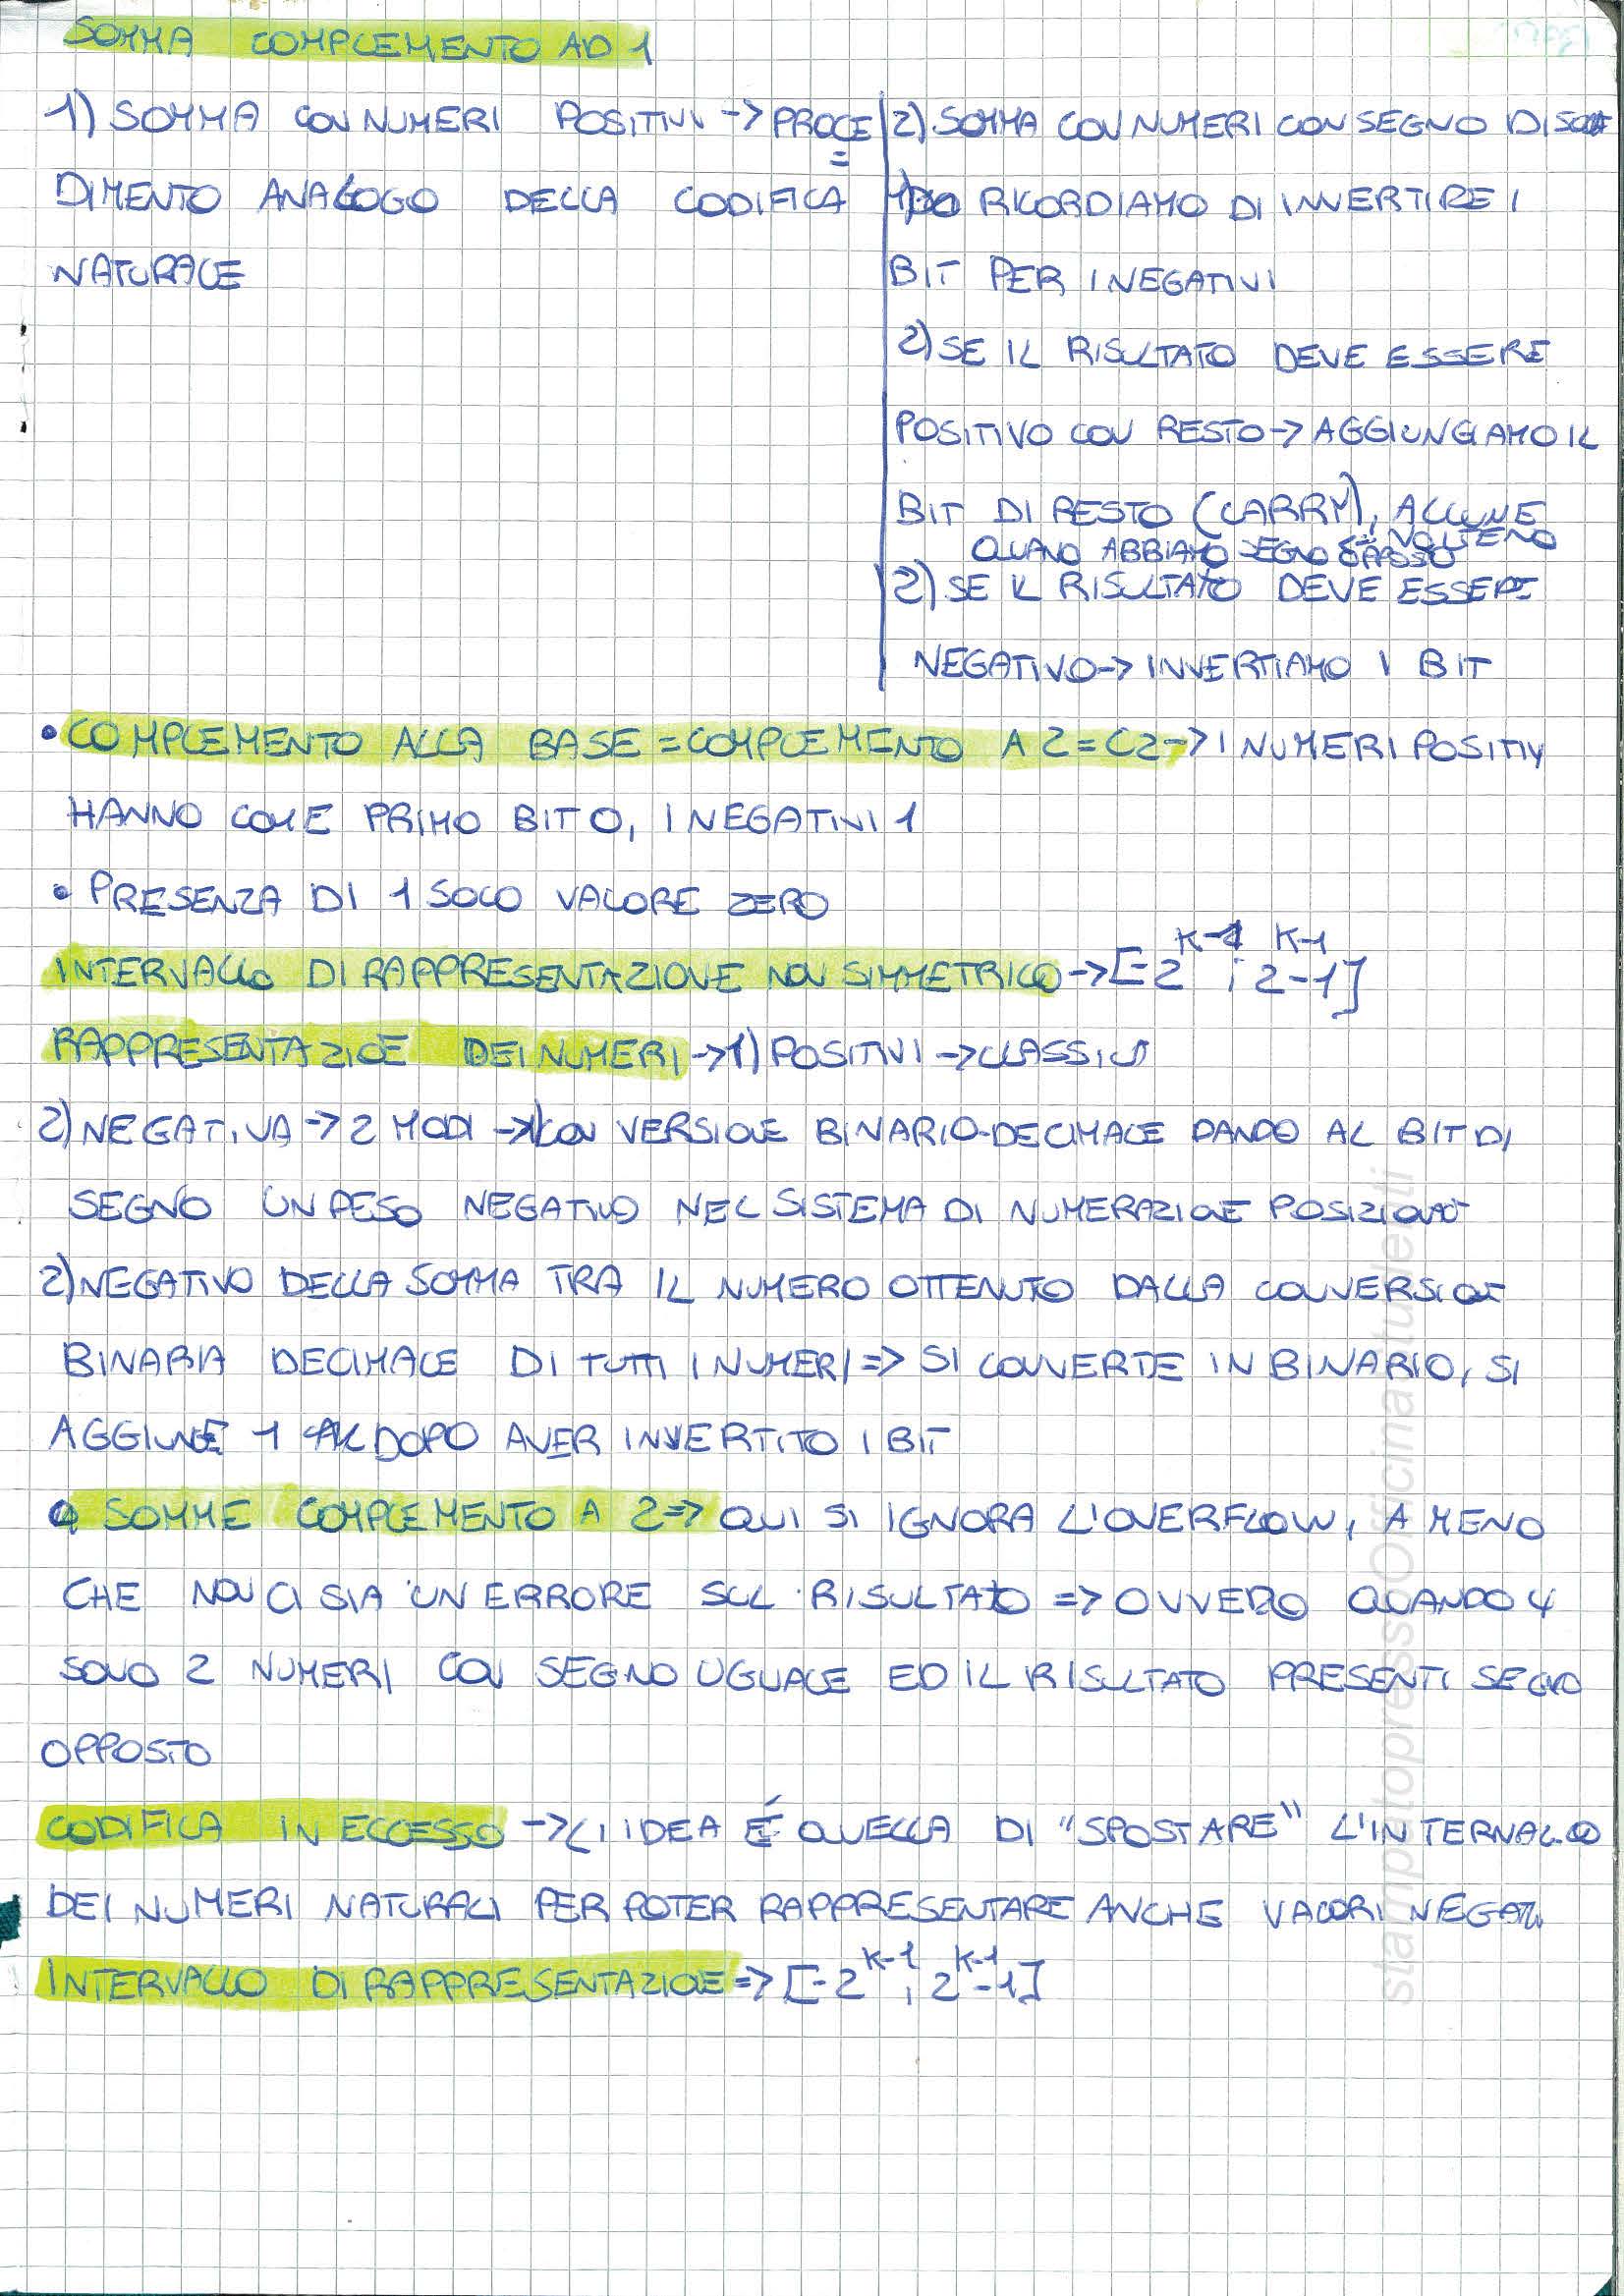 SOMMA COMPLEMENTO AD 1
1) SOMMA CON NUMERI POSITIVI -> PROCE=
DIMENTO ANALOGO DELLA CODIFICA
NATURALE
2) SOMMA CON NUMERI CON SEGNO
RICORDIAMO DI INVERTIRE I
BIT PER I NEGATIVI
2) SE IL RISULTATO DEVE ESSERE
POSITIVO CON RESTO -> AGGIUNGIAMO IL
BIT DI RESTO (CARRY), ALCUNE
VOLTE NO
QUANO ABBIAMO SEGNO OPPOSTO
2) SE IL RISULTATO DEVE ESSERE
NEGATIVO -> INVERTIAMO I BIT
• COMPLEMENTO ALLA BASE = COMPLEMENTO A 2 = C2 -> I NUMERI POSITIV
HANNO COME PRIMO BIT 0, I NEGATIVI 1
• PRESENZA DI 1 SOLO VALORE ZERO
INTERVALLO DI RAPPRESENTAZIONE NON SIMMETRICO -> [-2^K-1 ; 2^K-1 -1]
RAPPRESENTAZIOE DEI NUMERI -> 1) POSITIVI -> CLASSICI
2) NEGATIVA -> 2 MODI -> 1) CON VERSIONE BINARIO-DECIMALE DANDO AL BIT DI
SEGNO UN PESO NEGATIVO NEL SISTEMA DI NUMERAZIONE
2) NEGATIVO DELLA SOMMA TRA IL NUMERO OTTENUTO DALLA CONVERSIOE
BINARIA DECIMALE DI TUTTI I NUMERI => SI CONVERTE IN BINARIO, SI
AGGIUNGE 1 DOPO AVER INVERTITO I BIT
• SOMME COMPLEMENTO A 2 => QUI SI IGNORA L'OVERFLOW, A MENO
CHE NON CI SIA UN ERRORE SUL RISULTATO => OVVERO QUANDO CI
SONO 2 NUMERI CON SEGNO UGUALE ED IL RISULTATO PRESENTI SEGNO
OPPOSTO
CODIFICA IN ECCESSO -> L'IDEA É QUELLA DI "SPOSTARE" L'INTERVALLO
DEI NUMERI NATURALI PER POTER RAPPRESENTARE ANCHE VALORI NEGATI
INTERVALLO DI RAPPRESENTAZIOE => [-2^K-1, 2^K-1 -1]
stampatopressoOfficinastudenti